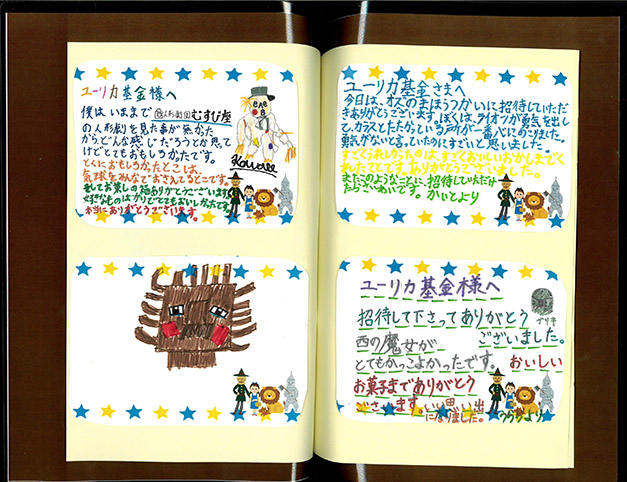 ユーリカ基金様へ
僕はいままで人形劇団むすび座
の人形劇を見た事が無かった
からどんな感じだろうとか思って
けどとてもおもしろかたです。
とくにおもしろかたとこは、
気球をみんなでおさえるとこです。
そしてお菓しの箱ありがとうございます
好きなものばかりでとてもおいしかたです
本当にありがとうございます。
ユーリカ基金さまへ
今日は、オズのまほうつかいに招待していただ
きありがとうございます。ぼくは、ライオンが勇気を出し
て、カラスとたたかっている所が一番心にのこりました。
勇気がないと言っていたのにすごいと思いました。
すごくうれしかったのは、すごくおいしいおかしまでく
れたことです。ありがとうございました。
またこのようなことに、招待していただけ
たらさいわいです。かいとより
ユーリカ基金様へ
招待して下さってありがとう
ございました。
ブリキ
西の魔女が
とてもかっこよかったです。おいしい
お菓子までありがとう
ございます。いい思い出
になりました。